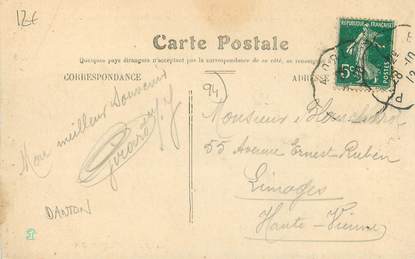 12€
Carte Postale
Quelques pays étrangers n'acceptant pas la correspondance de ce côté, se renseigner
CORRESPONDANCE
ADR
94
RÉPUBLIQUE FRANÇAISE
5c
POSTES
Mon meilleur Souvenir
Girard
DANTON
Monsieur
55 Avenue Ernest-Ruben
Limoges
Haute-Vienne